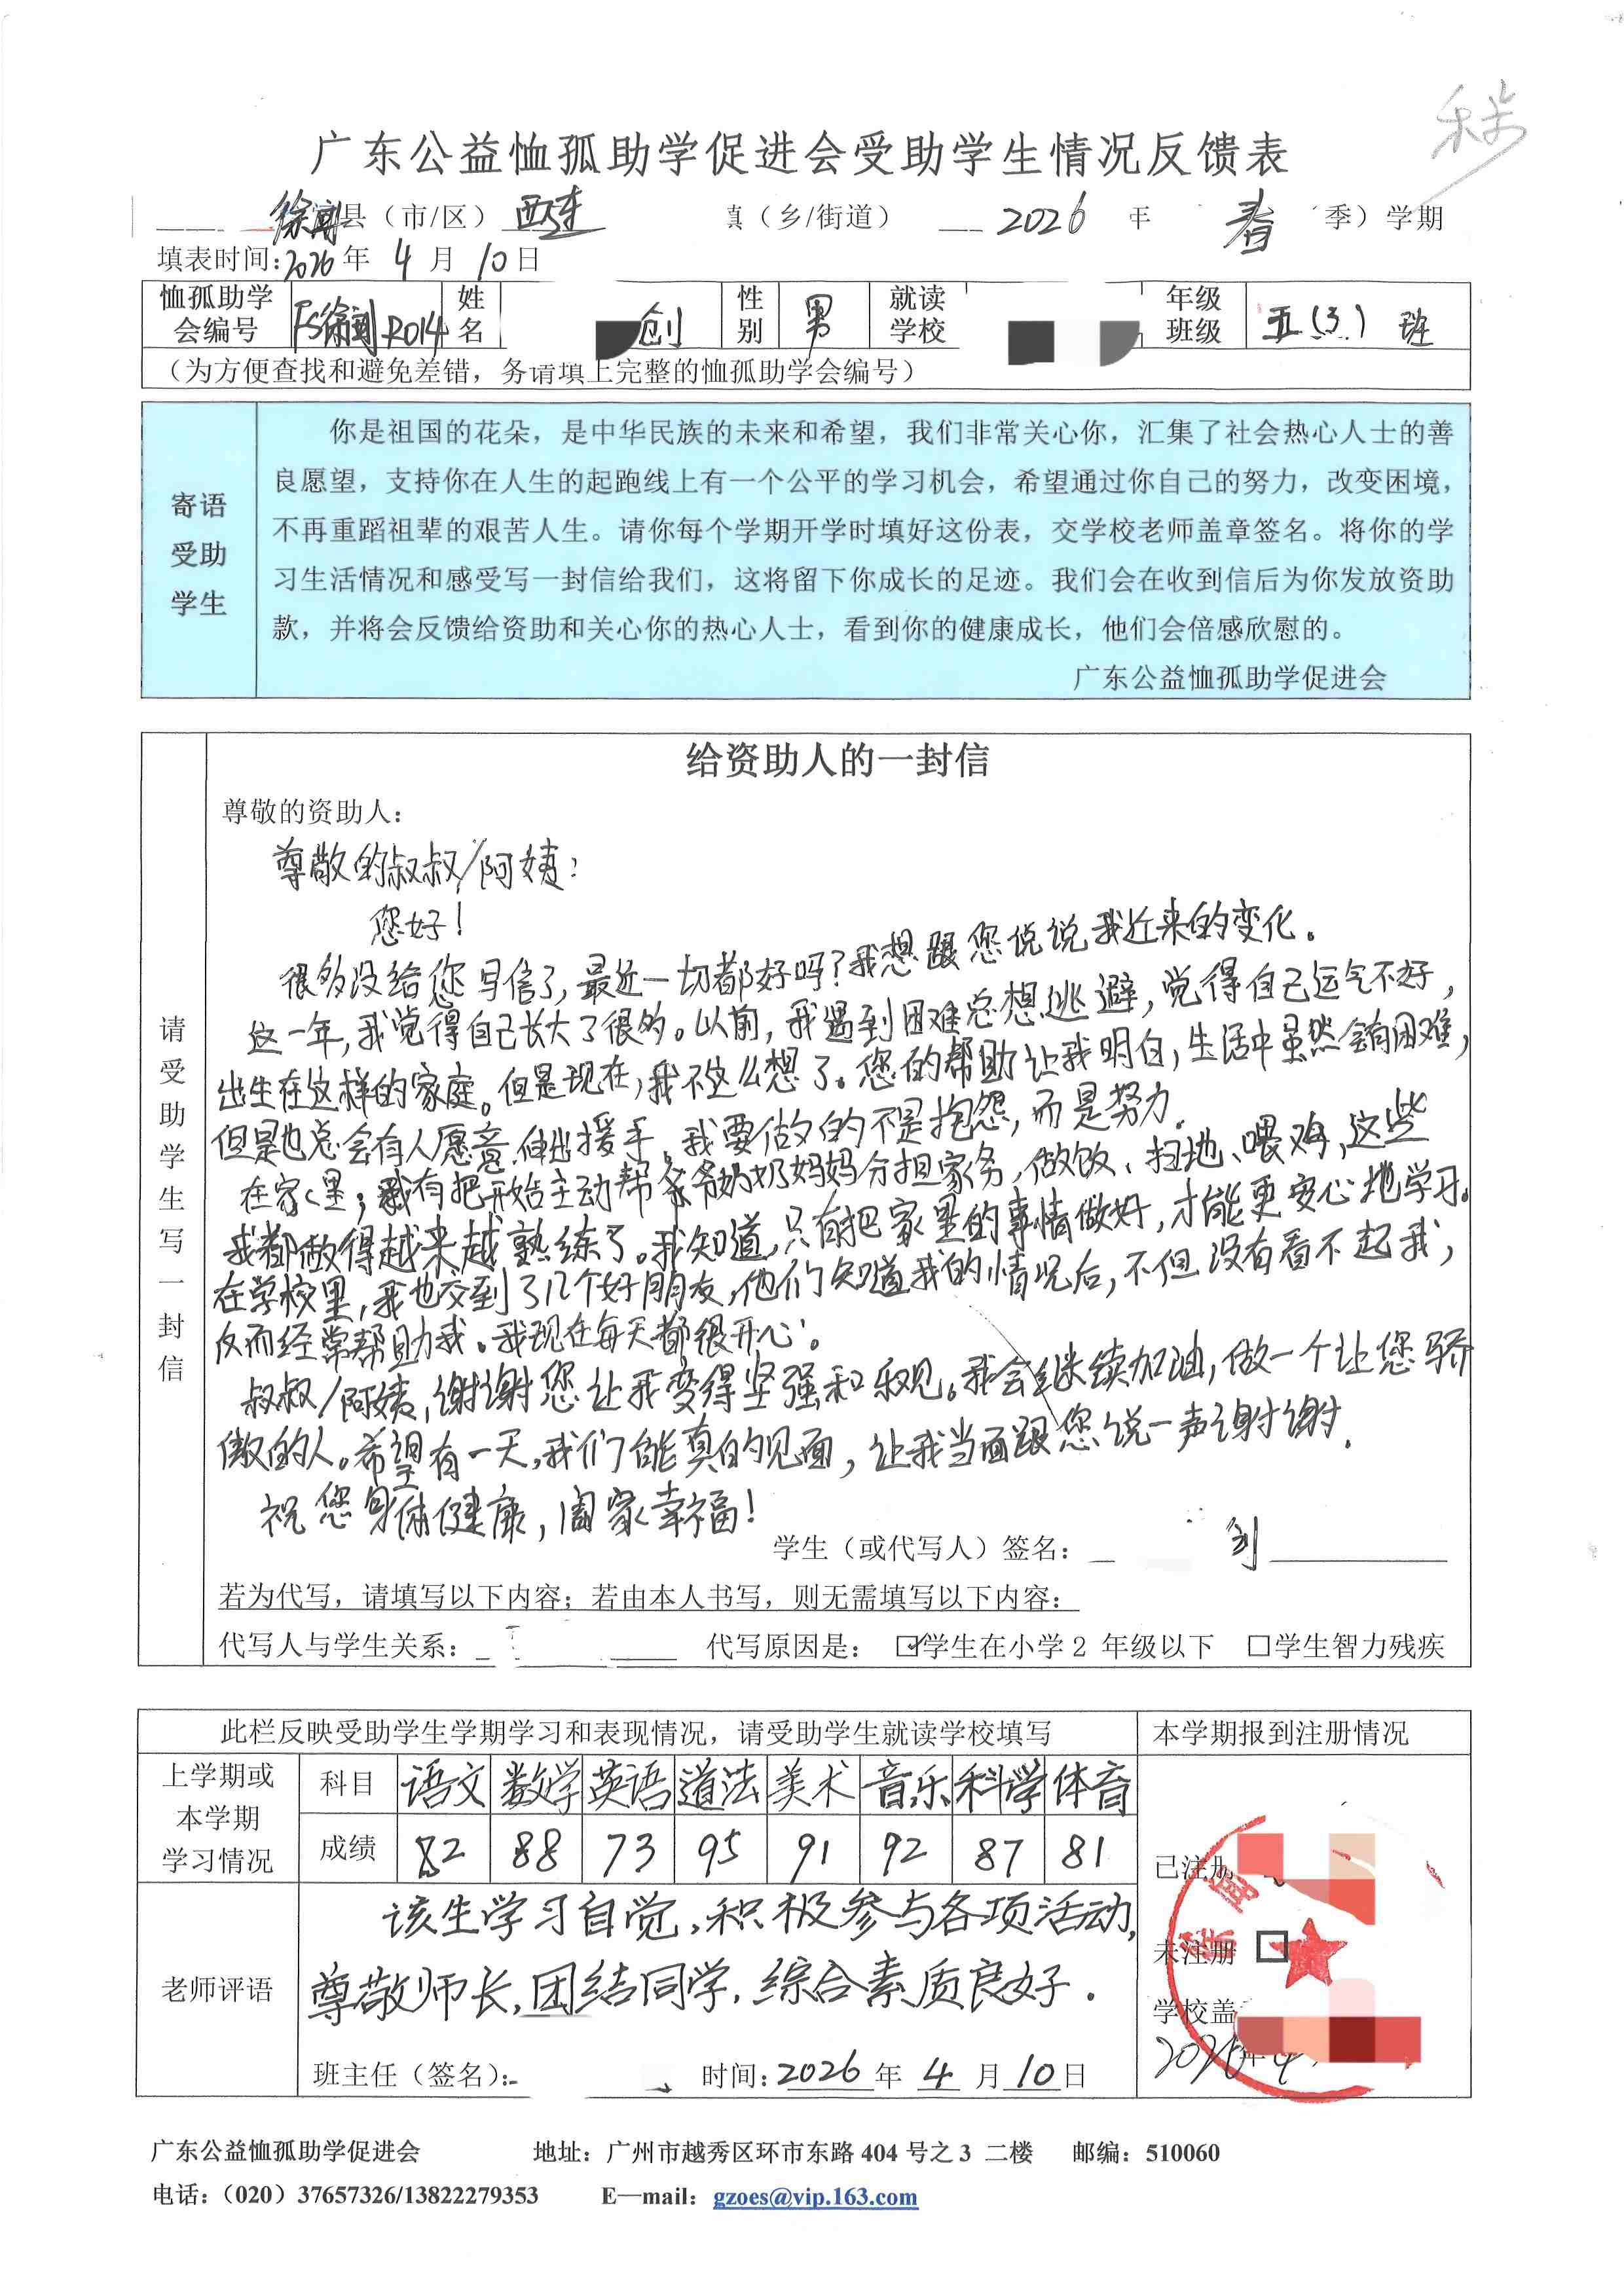 广东公益恤孤助学促进会受助学生情况反馈表
徐闻县（市/区） 西连 镇（乡/街道） 2026 年 春 季）学期
填表时间:2026年 4 月 10日
恤孤助学会编号 FS徐闻R014 姓名 创 性别 男 就读学校 年级班级 五（3）班
（为方便查找和避免差错，务请填上完整的恤孤助学会编号）
寄语受助学生
你是祖国的花朵，是中华民族的未来和希望，我们非常关心你，汇集了社会热心人士的善
良愿望，支持你在人生的起跑线上有一个公平的学习机会，希望通过你自己的努力，改变困境，
不再重蹈祖辈的艰苦人生。请你每个学期开学时填好这份表，交学校老师盖章签名。将你的学
习生活情况和感受写一封信给我们，这将留下你成长的足迹。我们会在收到信后为你发放资助
款，并将会反馈给资助和关心你的热心人士，看到你的健康成长，他们会倍感欣慰的。
广东公益恤孤助学促进会
请受助学生写一封信
给资助人的一封信
尊敬的资助人：
尊敬的叔叔/阿姨：
您好！
很多没给您写信了，最近一切都好吗？我想跟您说说我近来的变化。
这一年，我觉得自己长大了很多。以前，我遇到困难总想逃避，觉得自己运气不好，
出生在这样的家庭。但是现在，我不这么想了。您的帮助让我明白，生活中虽然会有困难，
但是也总会有人愿意伸出援手。我要做的不是抱怨，而是努力。
在家里；我有把开始主动帮爷爷奶奶妈妈分担家务，做饭、扫地、喂鸡，这些
我都做得越来越熟练了。我知道，只有把家里的事情做好，才能更安心地学习。
在学校里，我也交到了几个好朋友，他们知道我的情况后，不但没有看不起我，
反而经常帮助我。我现在每天都很开心。
叔叔/阿姨，谢谢您让我变得坚强和乐观。我会继续加油，做一个让您骄
傲的人。希望有一天，我们能真的见面，让我当面跟您说一声谢谢。
祝您身体健康，阖家幸福！
学生（或代写人）签名： 创
若为代写，请填写以下内容；若由本人书写，则无需填写以下内容：
代写人与学生关系： 代写原因是： ☑学生在小学 2 年级以下 □学生智力残疾
此栏反映受助学生学期学习和表现情况，请受助学生就读学校填写 本学期报到注册情况
上学期或本学期学习情况 科目 语文 数学 英语 道法 美术 音乐 科学 体育
成绩 82 88 73 95 91 92 87 81
已注册
未注册 □
学校盖
老师评语
该生学习自觉，积极参与各项活动，
尊敬师长，团结同学，综合素质良好．
班主任（签名）： 时间：2026 年 4 月 10日
广东公益恤孤助学促进会 地址：广州市越秀区环市东路 404 号之 3 二楼 邮编：510060
电话：（020）37657326/13822279353 E—mail：gzoes@vip.163.com